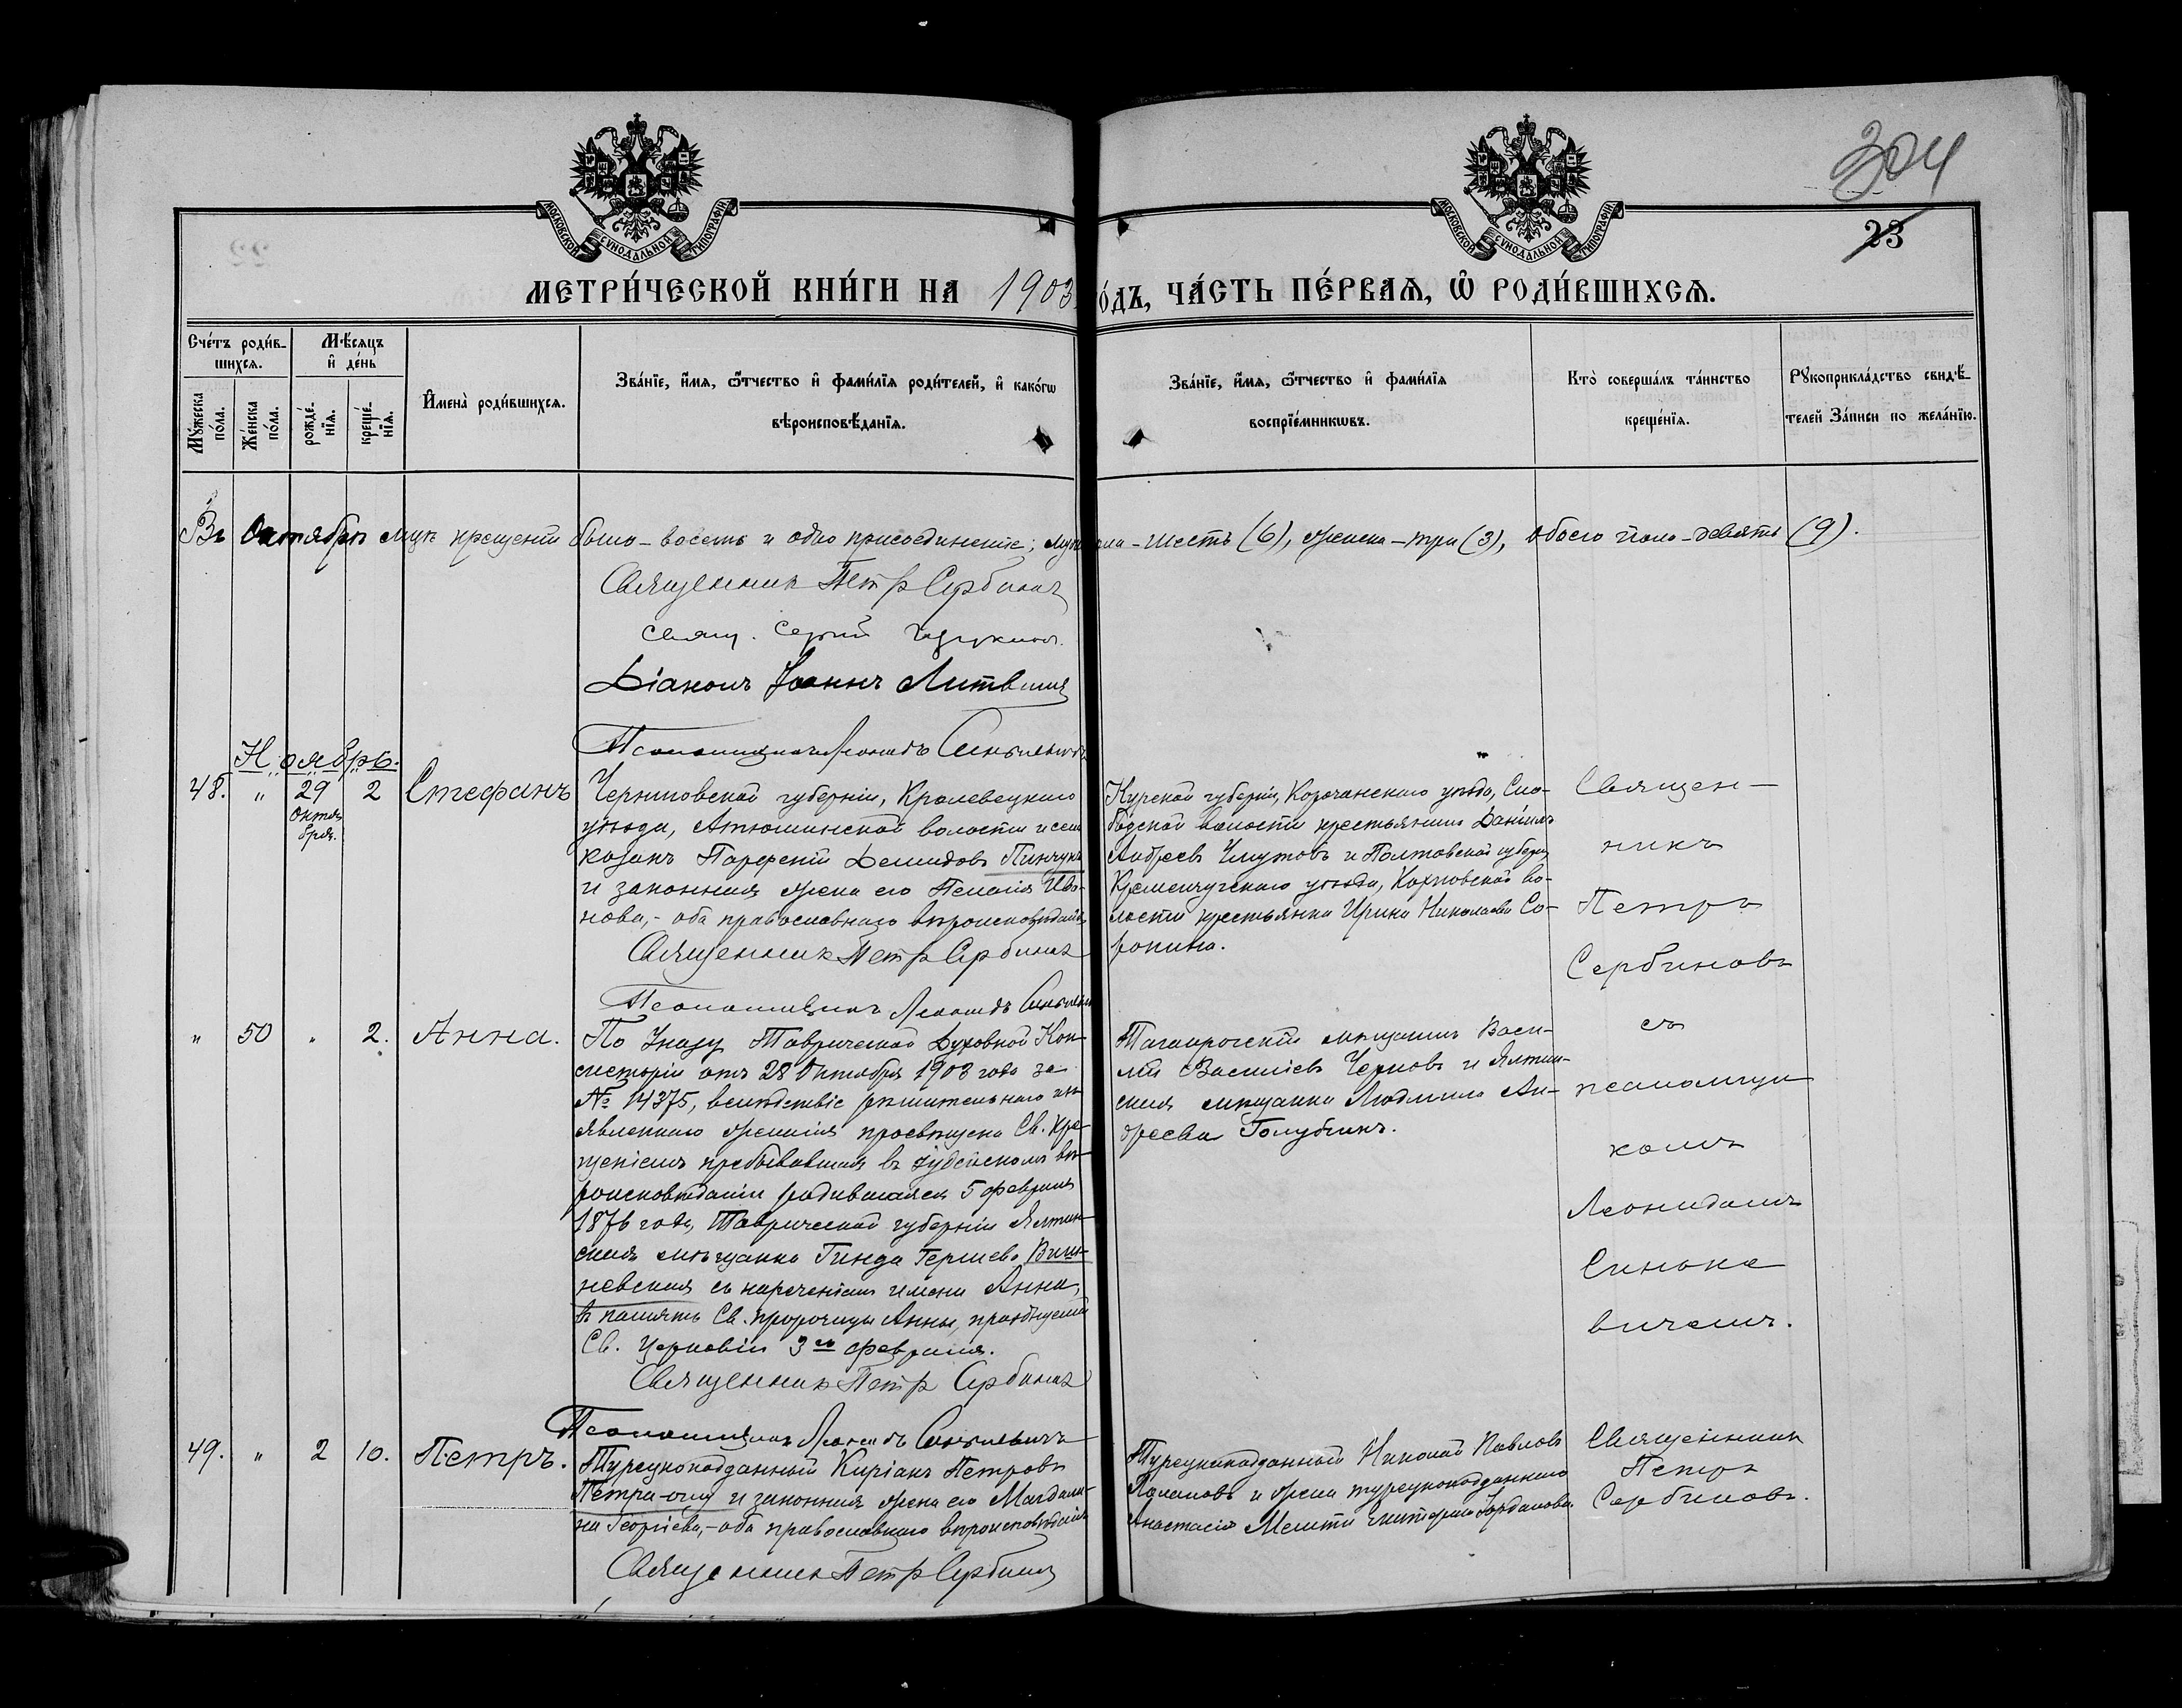 304
23
МОСКОВСКОЙ СѴНОДАЛЬНОЙ ТИПОГРАФІИ
МОСКОВСКОЙ СѴНОДАЛЬНОЙ ТИПОГРАФІИ
МЕТРИ́ЧЕСКОЙ КНИ́ГИ НА 1903 О́ДЪ, ЧА́СТЬ ПЕ́РВАѦ, Ѡ҆ РОДИ́ВШИХСѦ.
Сче́тъ роди́в-
шихсѧ.
Мꙋ́жеска
по́ла.
Же́нска
по́ла.
Мѣ́сѧцъ
и҆ де́нь
рожде́-
нїѧ.
креще́-
нїѧ.
И҆мена̀ роди́вшихсѧ.
Зва́нїе, и҆́мѧ, ѻ҆́тчество и҆ фами́лїѧ роди́телей, и҆ како́гѡ
вѣроисповѣ́данїѧ.
Зва́нїе, и҆́мѧ, ѻ҆́тчество и҆ фами́лїѧ
воспрїе́мникѡвъ.
Кто̀ соверша́лъ та́инство
креще́нїѧ.
Рꙋкоприкла́дство свидѣ́-
телей За́писи по жела́нїю.
Въ Октябрѣ мцѣ крещеній было - восемь и одно присоединеніе; муж пола - шесть (6), женска - три (3), обоего пола - девять (9).
Священникъ Петръ Сербиновъ
Свящ. Сергій
Діаконъ Іоаннъ Литвинъ
Псаломщикъ Леонидъ Синькевичъ
Ноябрь.
48. " 29 2 Стефанъ
Октяб-
бря.
Черниговской губерніи, Кролевецкаго
уѣзда, Атюшинской волости и села
козакъ Парфеній Демидовъ Пинчукъ
и законная жена его Пелагія Ива-
нова, - оба православнаго вѣроисповѣданія
Священникъ Петръ Сербиновъ
Псаломщикъ Леонидъ Синькевичъ
Курской губерніи, Корочанскаго уѣзда, Сло-
бодской волости крестьянинъ Даніилъ
Андреевъ и Полтавской губерніи,
Кременчугскаго уѣзда, во-
лости крестьянка Ирина Николаева Со-
рокина.
Священ-
никъ
Петръ
Сербиновъ
съ
псаломщи
комъ
Леонидомъ
Синьке
вичемъ.
" 50 " 2. Анна.
По Указу Таврической Духовной Кон-
систоріи отъ 28 Октября 1903 года за
№ 14375, вслѣдствіе рѣшительнаго изъ
явленнаго желанія просвѣщена Св. Кре-
щеніемъ пребывавшая въ іудейскомъ вѣ-
роисповѣданіи родившаяся 5 февраля
1876 года, Таврической губерніи Ялтин-
ская мѣщанка Гинда Гершева Виш-
невская съ нареченіемъ имени Анна,
въ память Св. пророчицы Анны, празднуемой
Св. Церковію 3го февраля.
Священникъ Петръ Сербиновъ
Псаломщикъ Леонидъ Синькевичъ
Таганрогскій мѣщанинъ Васи-
лій Васильевъ Черновъ и Ялтин-
ская мѣщанка Людмила Ан-
дреева Голубникъ.
49. " 2 10. Петръ.
Турецкоподданный Киріакъ Петровъ
Петра-оглу и законная жена его Магдали-
на Георгіева, - оба православнаго вѣроисповѣданія
Священникъ Петръ Сербиновъ
Турецкоподданный Николай Павловъ
и жена турецкоподданнаго
Анастасія
Священникъ
Петръ
Сербиновъ.